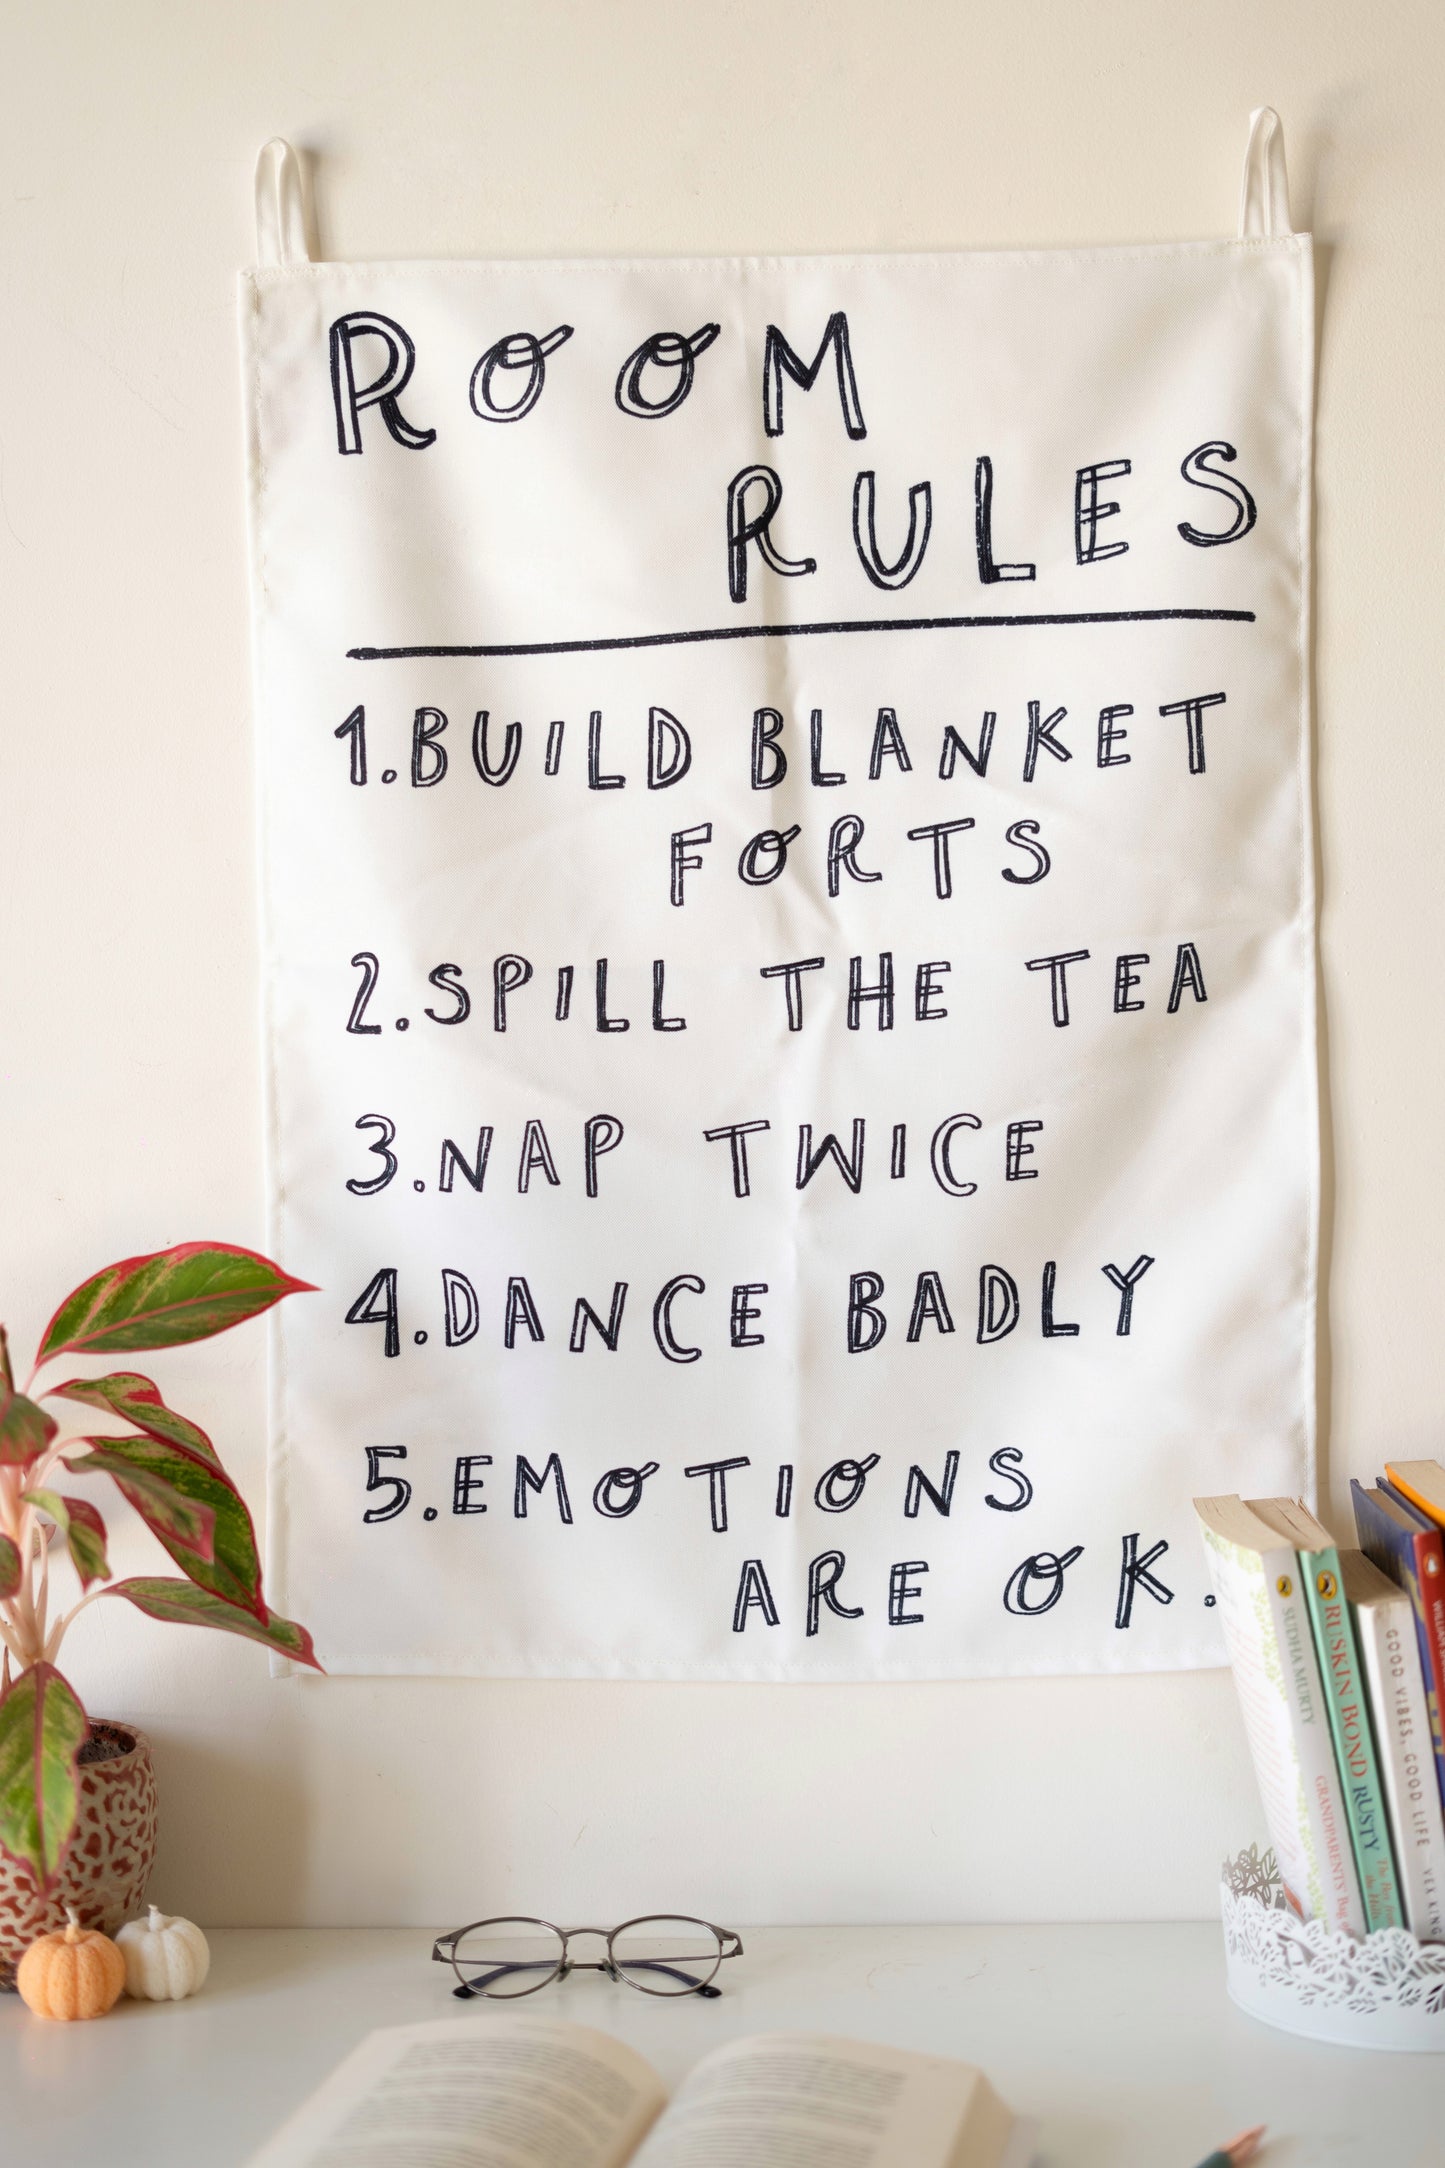 ROOM
RULES
1. BUILD BLANKET
FORTS
2. SPILL THE TEA
3. NAP TWICE
4. DANCE BADLY
5. EMOTIONS
ARE OK.
SUDHA MURTY GRANDPARENTS' Bag of
RUSKIN BOND RUSTY The Boy from the Hills
GOOD VIBES, GOOD LIFE VEX KING